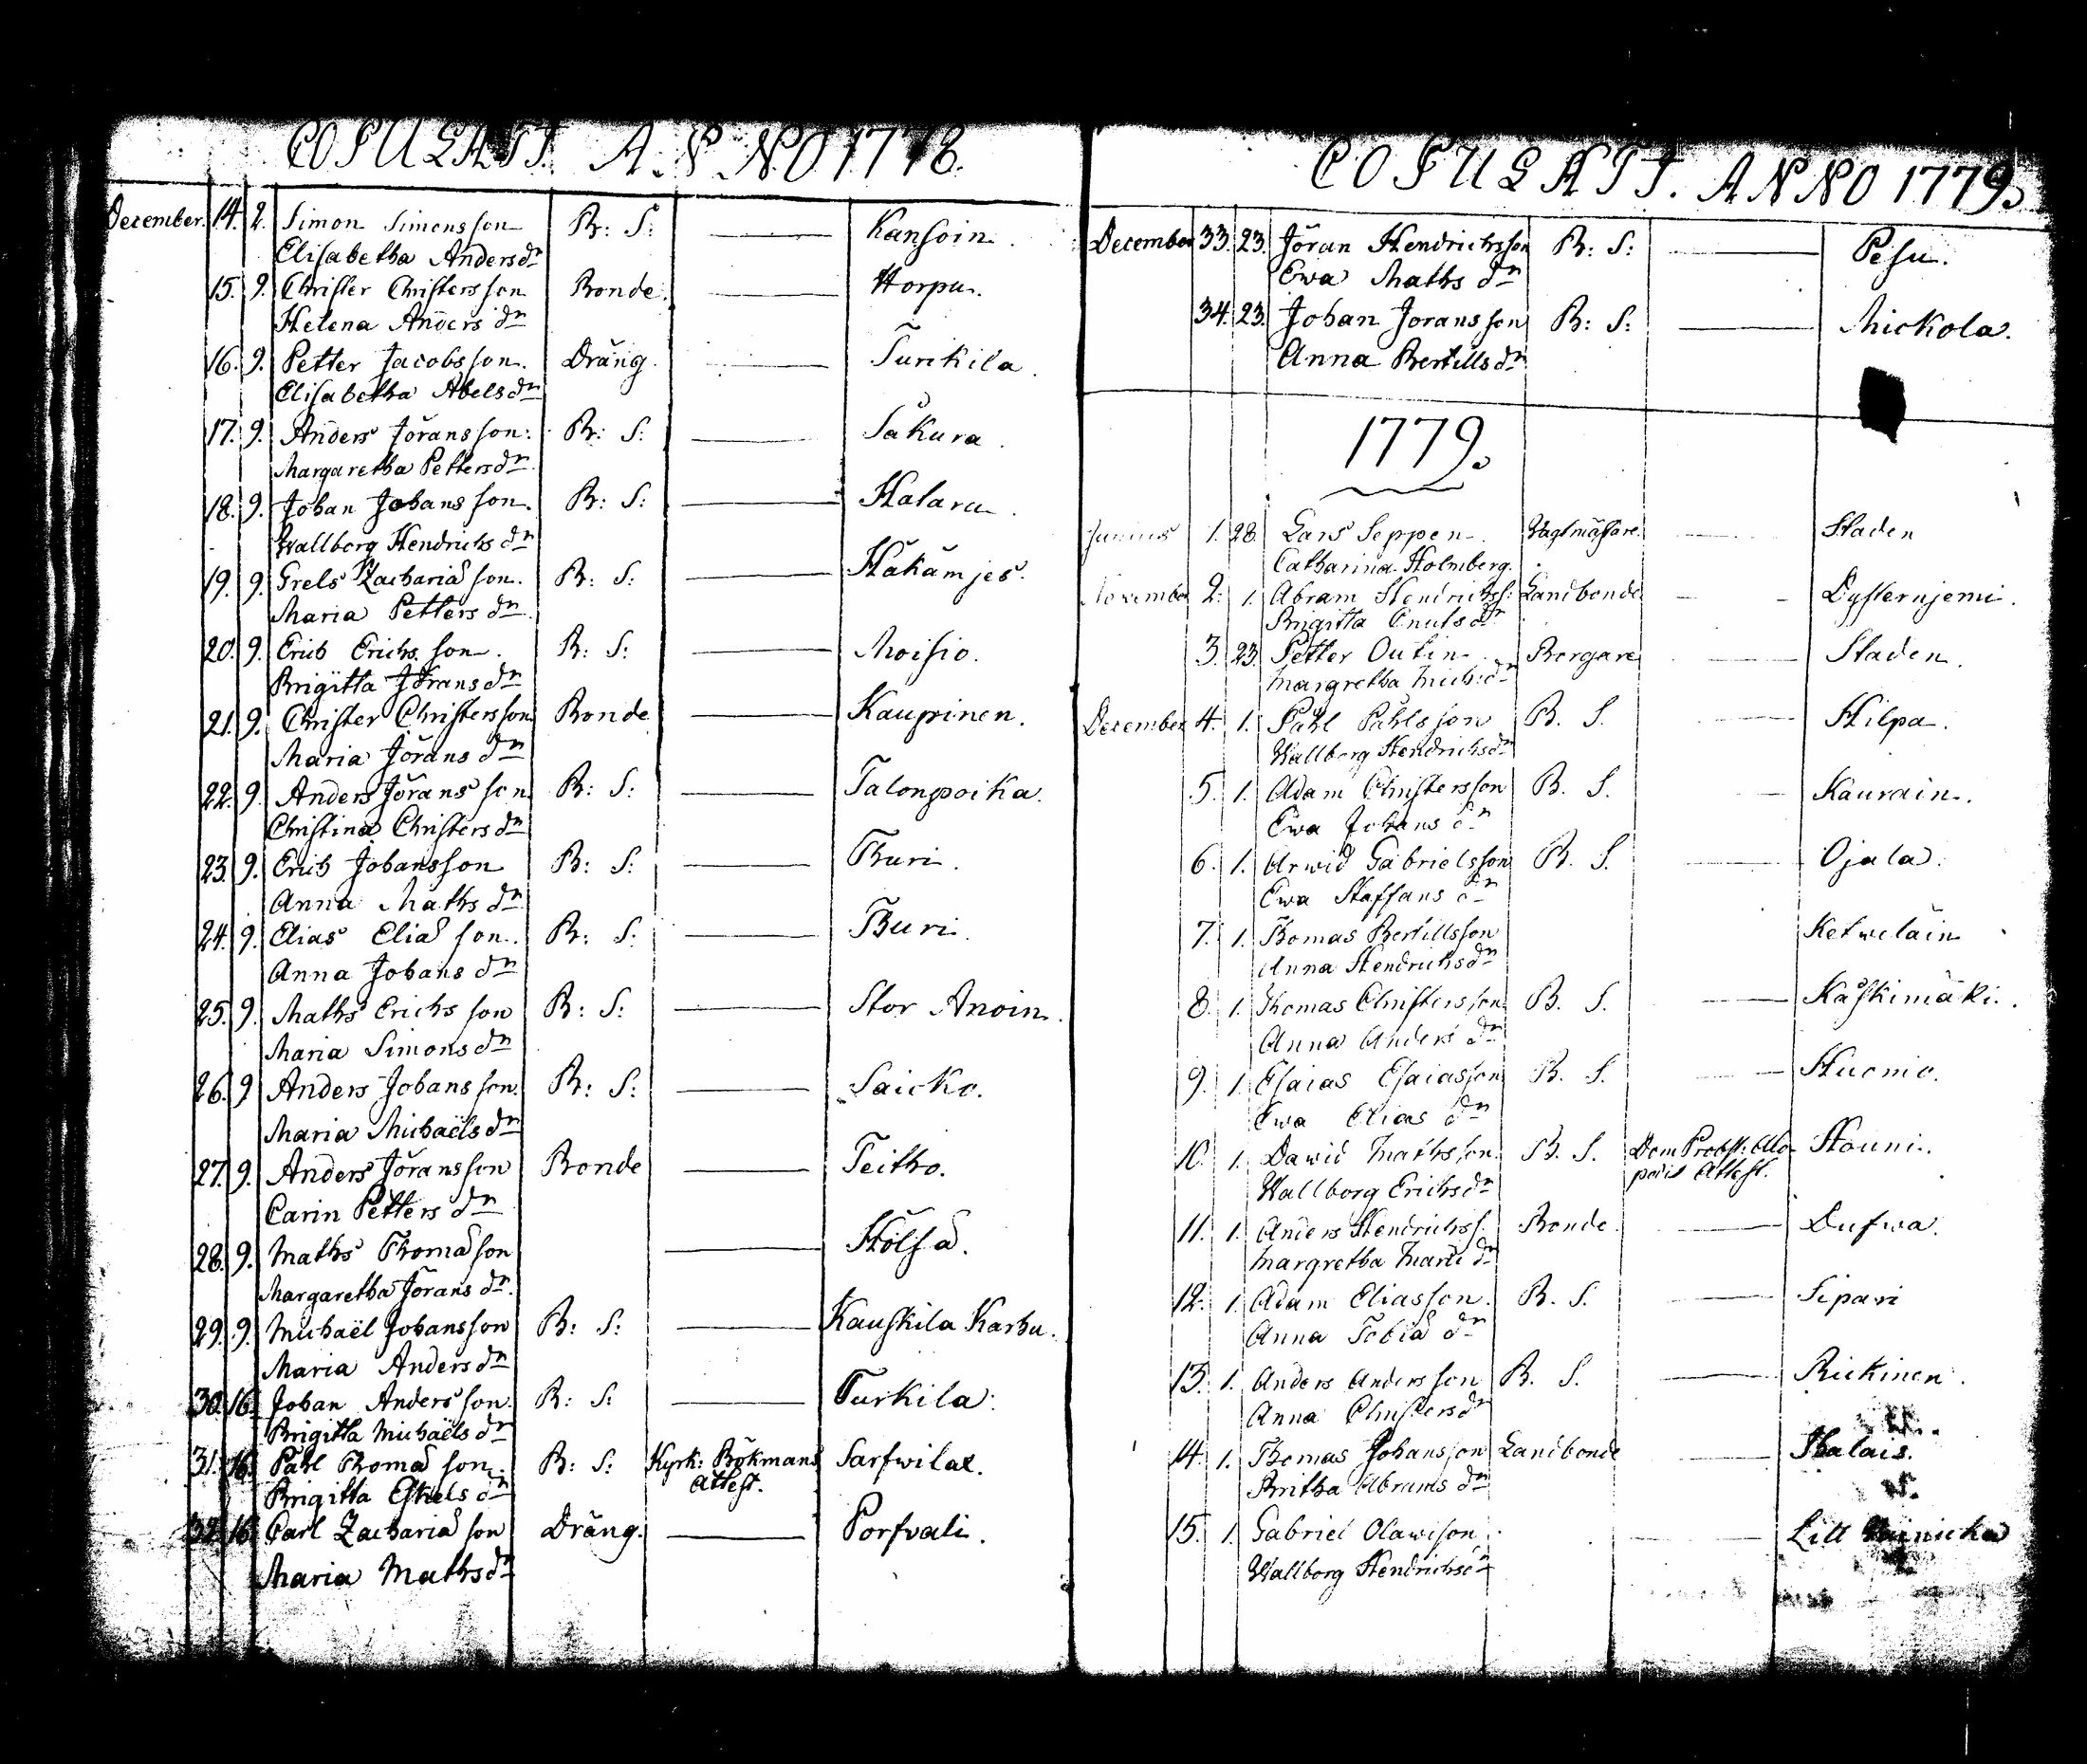 COPULATI. ANNO 1778.
December. 14. 9. Simon Simonsson B: S: Kansoin.
Elisabetha Anders dr
15. 9. Christer Christersson Bonde. Horpu.
Helena Anders dr
16. 9. Petter Jacobsson. Dräng. Turkila.
Elisabetha Abels dr
17. 9. Anders Jöransson. B: S: Säkura.
Margaretha Petters dr
18. 9. Johan Johansson. B: S: Halara.
Wallborg Hendrichs dr
19. 9. Grels Zachariæson. B: S: Häkämjes.
Maria Petters dr
20. 9. Erich Erichsson. B: S: Moisio.
Brigitta Jörans dr
21. 9. Christer Christersson Bonde Kauppinen.
Maria Jörans dr
22. 9. Anders Jöransson B: S: Talonpoika.
Christina Christers dr
23. 9. Erich Johansson B: S: Thuri.
Anna Maths dr
24. 9. Elias Eliæson. B: S: Thuri.
Anna Johans dr
25. 9. Maths Erichsson B: S: Stor Anoin.
Maria Simons dr
26. 9 Anders Johansson. B: S: Saicko.
Maria Michaëls dr
27. 9. Anders Jöransson Bonde Teitho.
Carin Petters dr
28. 9. Maths Thomæson Hölsä.
Margaretha Jörans dr.
29. 9. Michaël Johansson B: S: Kauskila Karhu.
Maria Anders dr
30. 16. Johan Andersson. B: S: Turkila.
Brigitta Michaëls dr
31. 16. Påhl Thomæson. B: S: Kyrk: Bökmans Sarfwilax.
Brigitta Eskels dr Attest.
32. 16. Carl Zachariæson Dräng. Porfvali.
Maria Maths dr
COPULATI. ANNO 1779.
December 33. 23. Jöran Hendrichsson B: S: Pesu.
Ewa Maths dr
34. 23. Johan Joransson B: S: Mickola.
Anna Bertills dr
1779.
Junius 1. 28. Lars Seppen. Wagtmästare. Staden
Catharina Holmberg.
November 2. 1. Abram Hendrichss: Landbonde Dysternjemi.
Brigitta Cnuts dr
3. 23. Petter Outin. Borgare Staden.
Margretha Mich: dr
December 4. 1. Påhl Påhlsson B. S. Hilpa.
Wallborg Hendrichs dr
5. 1. Adam Christersson B. S. Kaurain.
Ewa Johans dr
6. 1. Arwid Gabrielsson B. S. Ojala.
Ewa Staffans dr
7. 1. Thomas Bertillsson Ketweläin
Anna Hendrichs dr
8. 1. Thomas Christersson B. S. Kaskimäki.
Anna Anders dr
9. 1. Esaias Esaiasson B. S. Huomo.
Ewa Elias dr
10. 1. Dawid Mathsson. B. S. Dom Probst: Allo- Houni.
Wallborg Erichs dr pæi Attest.
11. 1. Anders Hendrichss. Bonde. Dufwa.
Margretha Mart: dr
12. 1. Adam Eliasson. B. S. Sipari
Anna Tobiæ dr
13. 1. Anders Andersson B. S. Rickinen.
Anna Christers dr
14. 1. Thomas Johansson Landbonde Halais.
Britha Abrams dr
15. 1. Gabriel Olawson. Lill
Wallborg Hendrichs dr